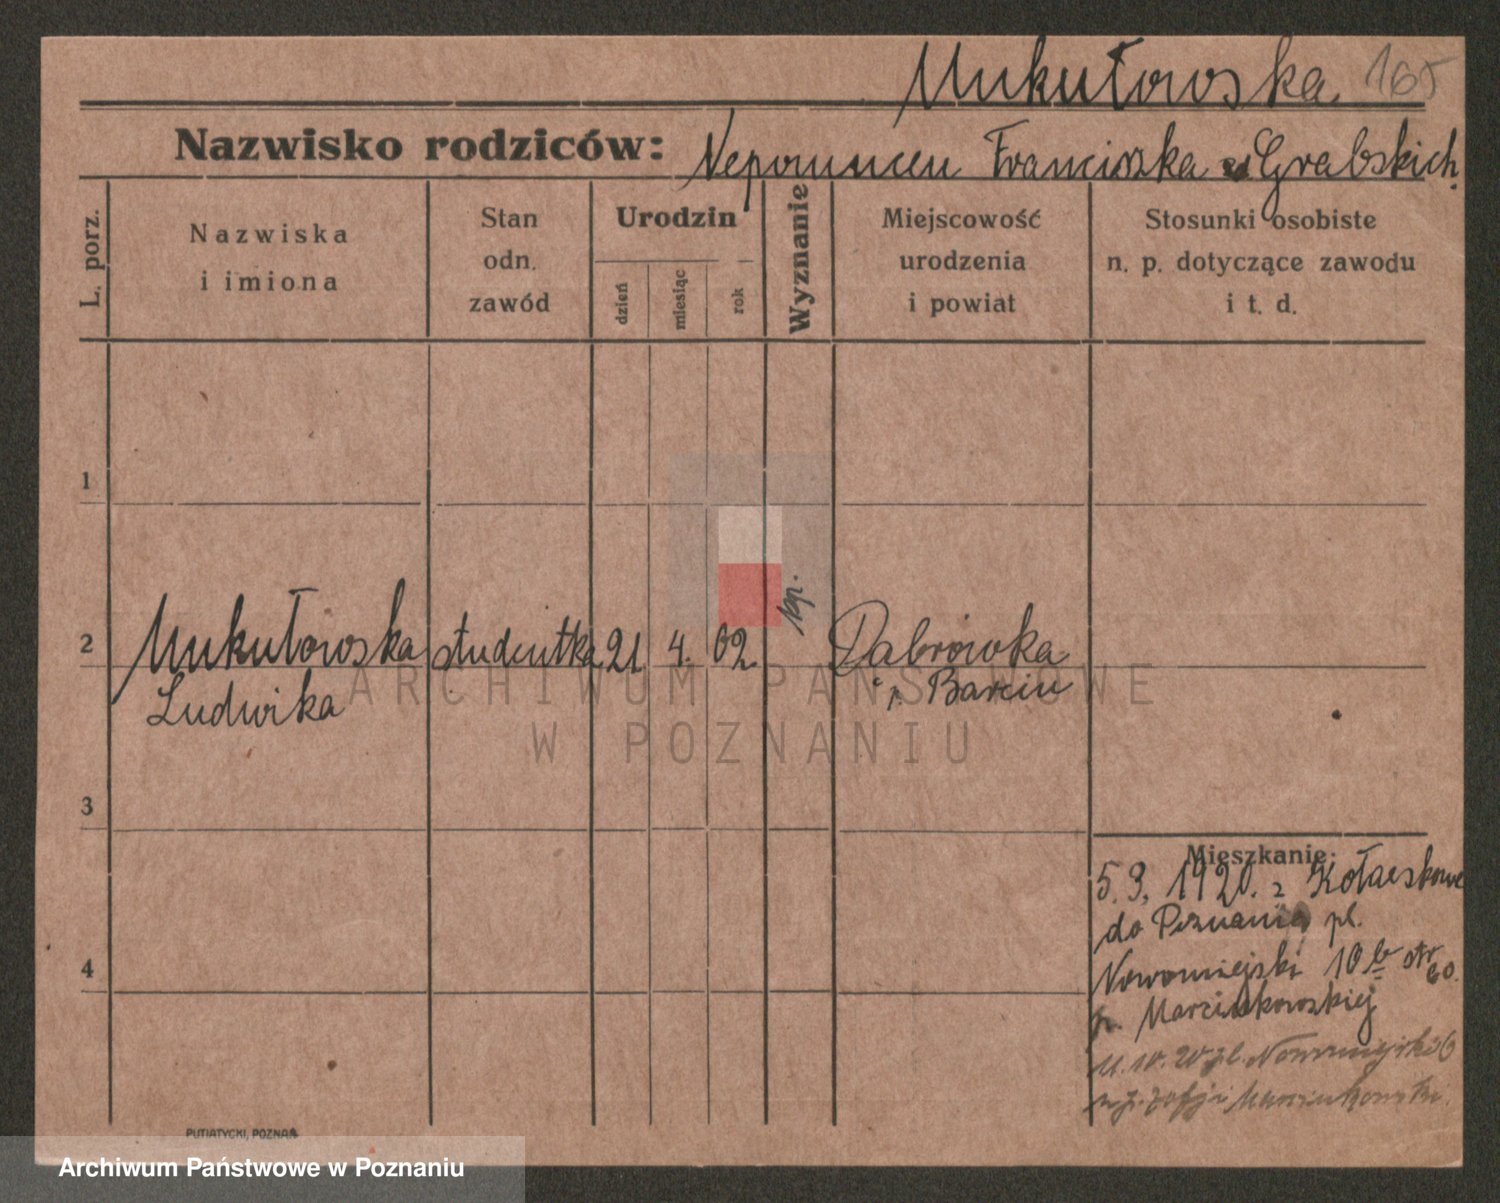 Mukułowska 165
Nazwisko rodziców: Nepomucen Franciszka Grabskich
L. porz.
Nazwiska
i imiona
Stan
odn.
zawód
Urodzin
dzień
miesiąc
rok
Wyznanie
Miejscowość
urodzenia
i powiat
Stosunki osobiste
n. p. dotyczące zawodu
i t. d.
1
2 Mukułowska studentka 21 4. 02. Dąbrówka
Ludwika p. Barcin
3
4
Mieszkanie:
5.9. 1920. z
do Poznania pl.
Nowomiejski 10 b
p. Marcinkowskiej
Nowomiejski 6
ARCHIWUM PAŃSTWOWE
W POZNANIU
PUTIATYCKI, POZNAŃ
Archiwum Państwowe w Poznaniu